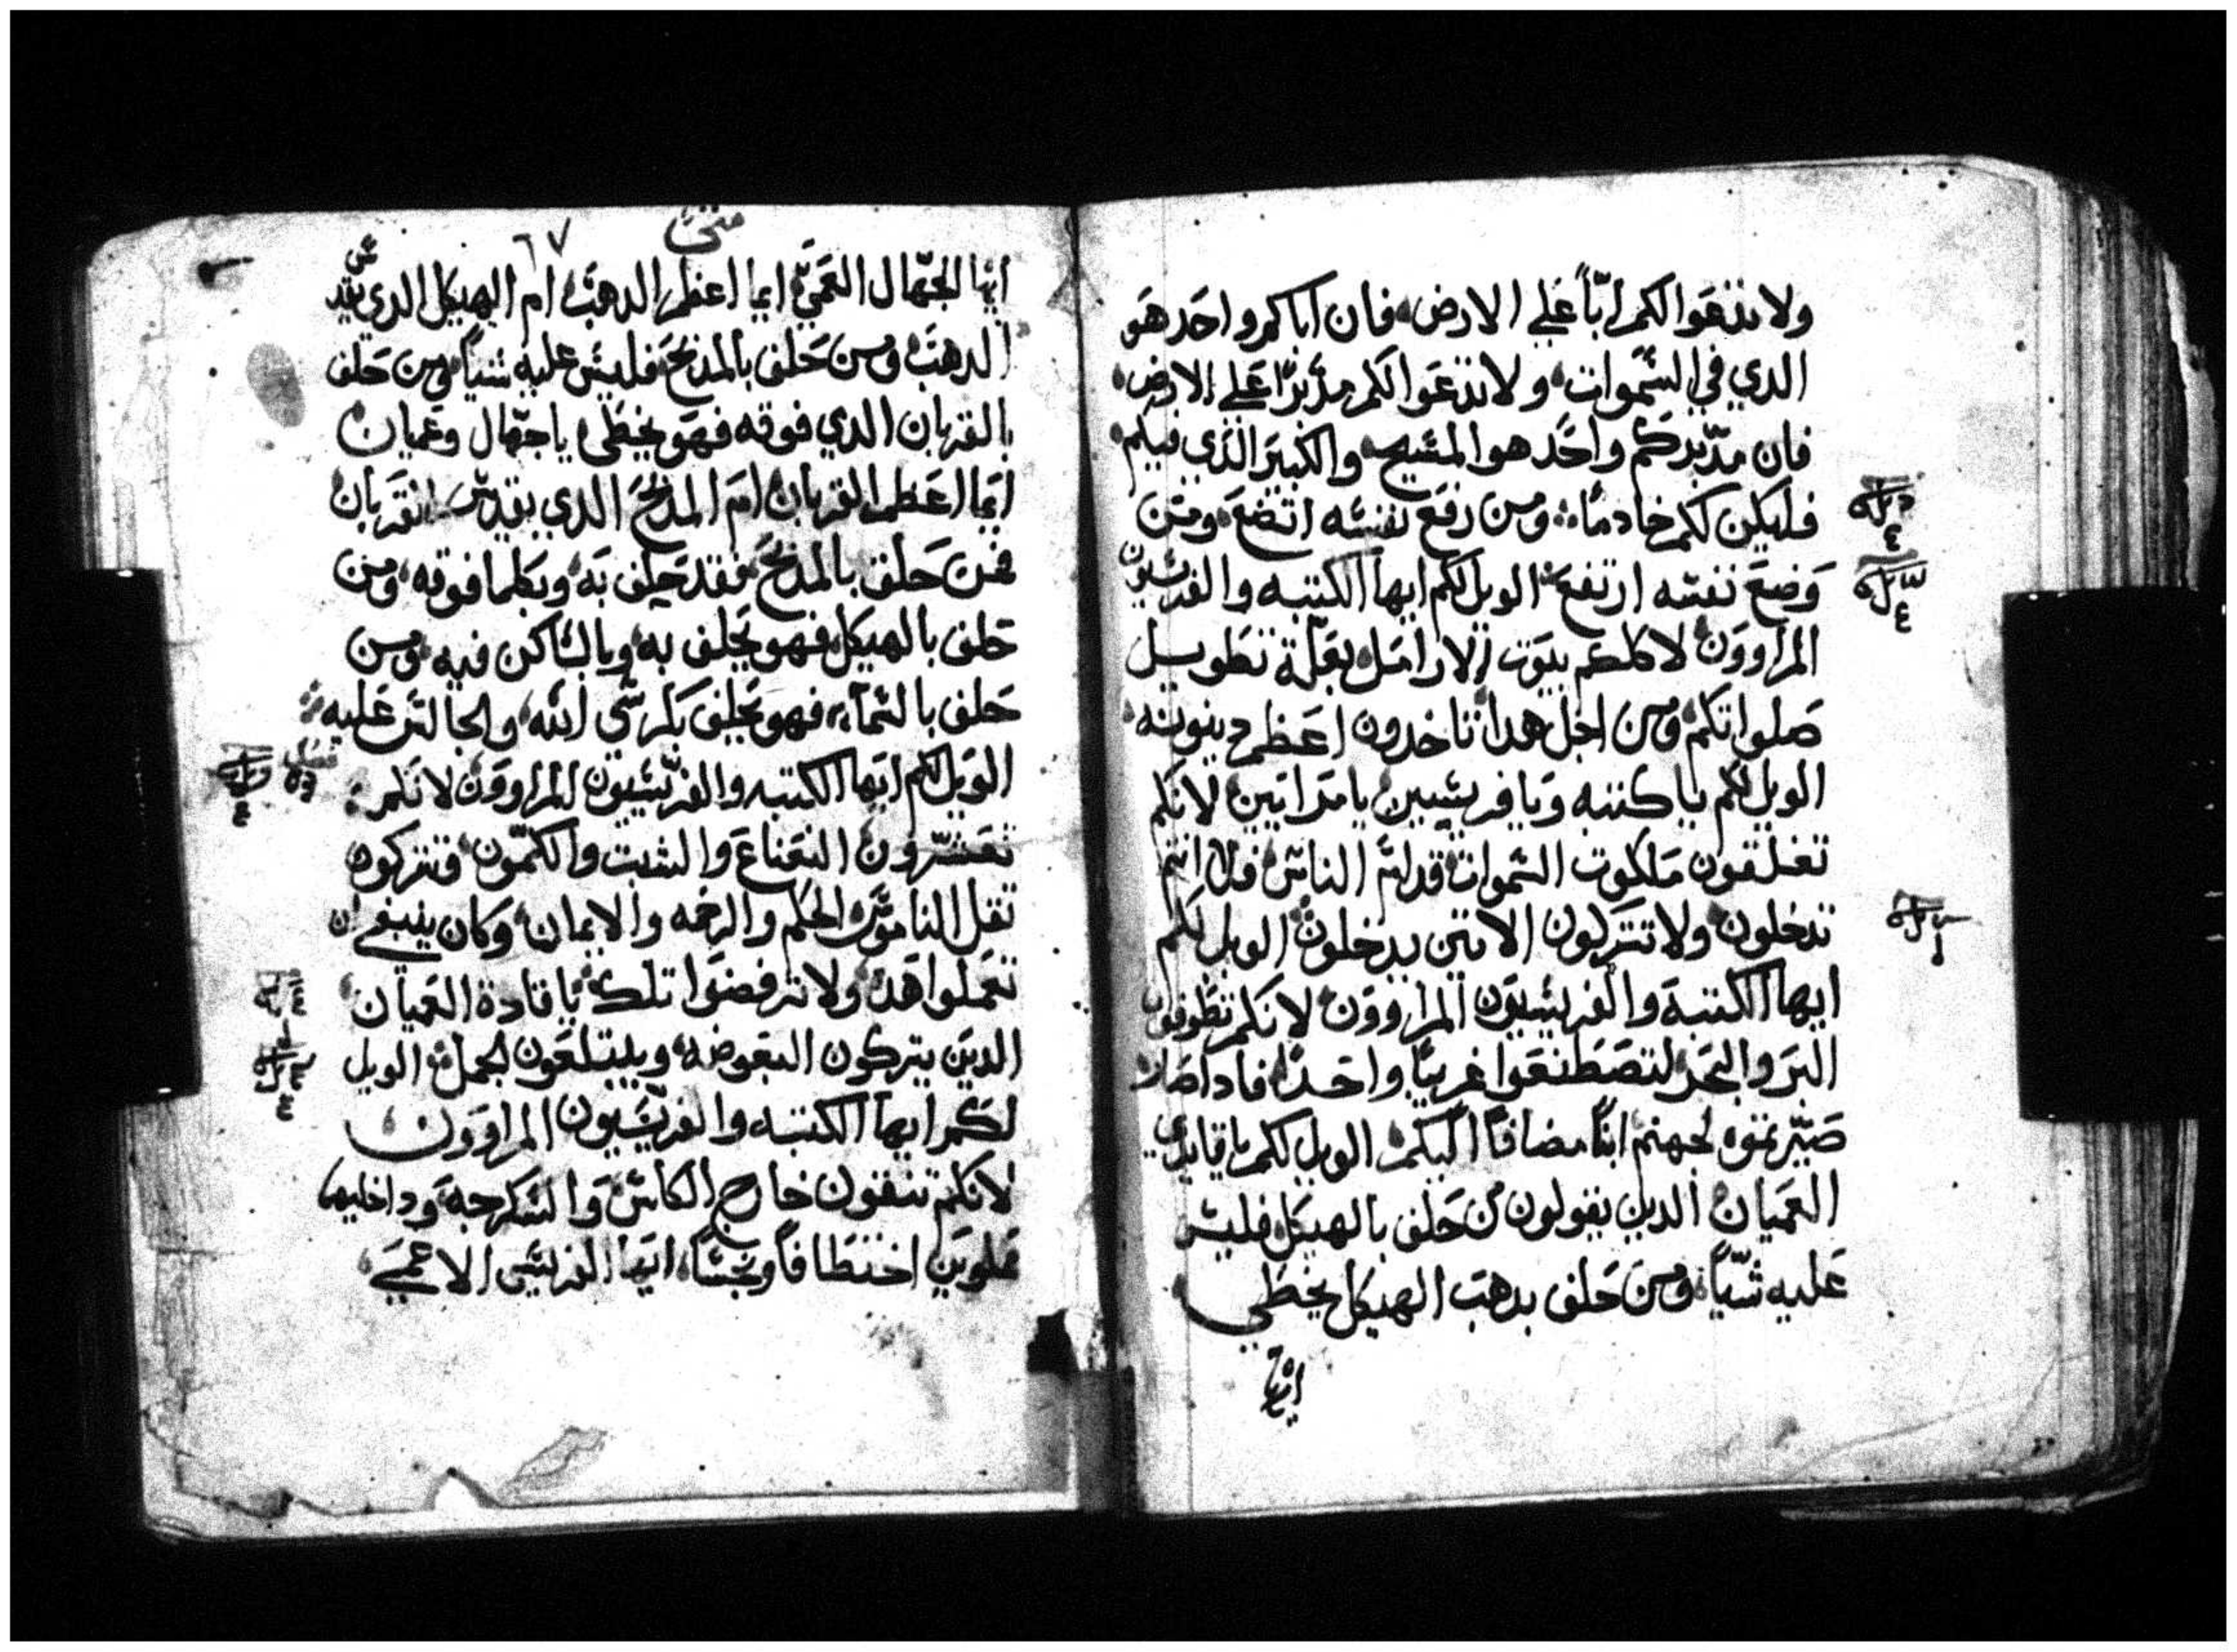 ولا تدعوا لكم ابّاً علي الارض، فان اباكم واحد هو
الدي في السموات، ولا تدعوا لكم مدبرًا علي الارض،
فان مدّبركم واحد هو المسيح، والكبير الذي فيكم،
فليكن لكم خادماً، ومن رفع نفسه اتضع، ومن
وضع نفسه ارتفع، الويل لكم ايها الكتبه والفريسيون
المراوون، لاكلكم بيوت الارامل بعلّة تطويل
صلواتكم، ومن اجل هدا تاخدون اعظم دينونه،
الويل لكم ياكتبه ويافريسيين يامرايين لانكم
تغلقون ملكوت السموات قدام الناس، فلا انتم
تدخلون، ولا تتركون الاتين يدخلون، الويل لكم
ايها الكتبة والفريسيون المراوون، لانكم تطوفون
البر والبحر، لتصطنعوا غريبًا واحدًا، فاداصار
صيّرتموه لجهنم ابنًا مضافاً اليكم، الويل لكم ياقايدي
العميان، الدين يقولون من حلف بالهيكل فليس
عليه شيّاً، ومن حلف بدهب الهيكل يخطي
ايها
متي
٦٧
ايها الجهّال العمي، ايما اعظم الدهب، ام الهيكل الدي يقدس
الدهب، ومن حلف بالمدبح، فليس عليه شياً، ومن حلف
بالقربان الدي فوقه فهو يخطى، ياجهّال وعميان
ايما اعظم القربان، ام المدبح الدي يقدس القربان
فمن حلف بالمدبح، فقد حلف به، وبكلما فوقه، ومن
حلف بالهيكل، فهو يحلف به، وبالساكن فيه، ومن
حلف بالسمآء، فهو يحلف بكرسّي الله، والجالس عليه،
فصل
الويل لكم ايها الكتبه والفريّسيون المراوون، لانكم
تعشّرون النعناع والشبت والكمّون، وتتركوا
ثقل الناموس، الحكم والرحمه والايمان، وكان ينبغي ان
تعملوا هده، ولا ترفضوا تلك، يا قادة العميان،
الدين يتركون البعوضه، ويبتلعون الجمل، الويل
لكم ايها الكتبه والفريّسيون المراوون،
لانكم تنقون خارج الكاس والسكرجة، وداخليهما
مملوين اختطافاً ونجساً، ايها الفريسي الاعمي،